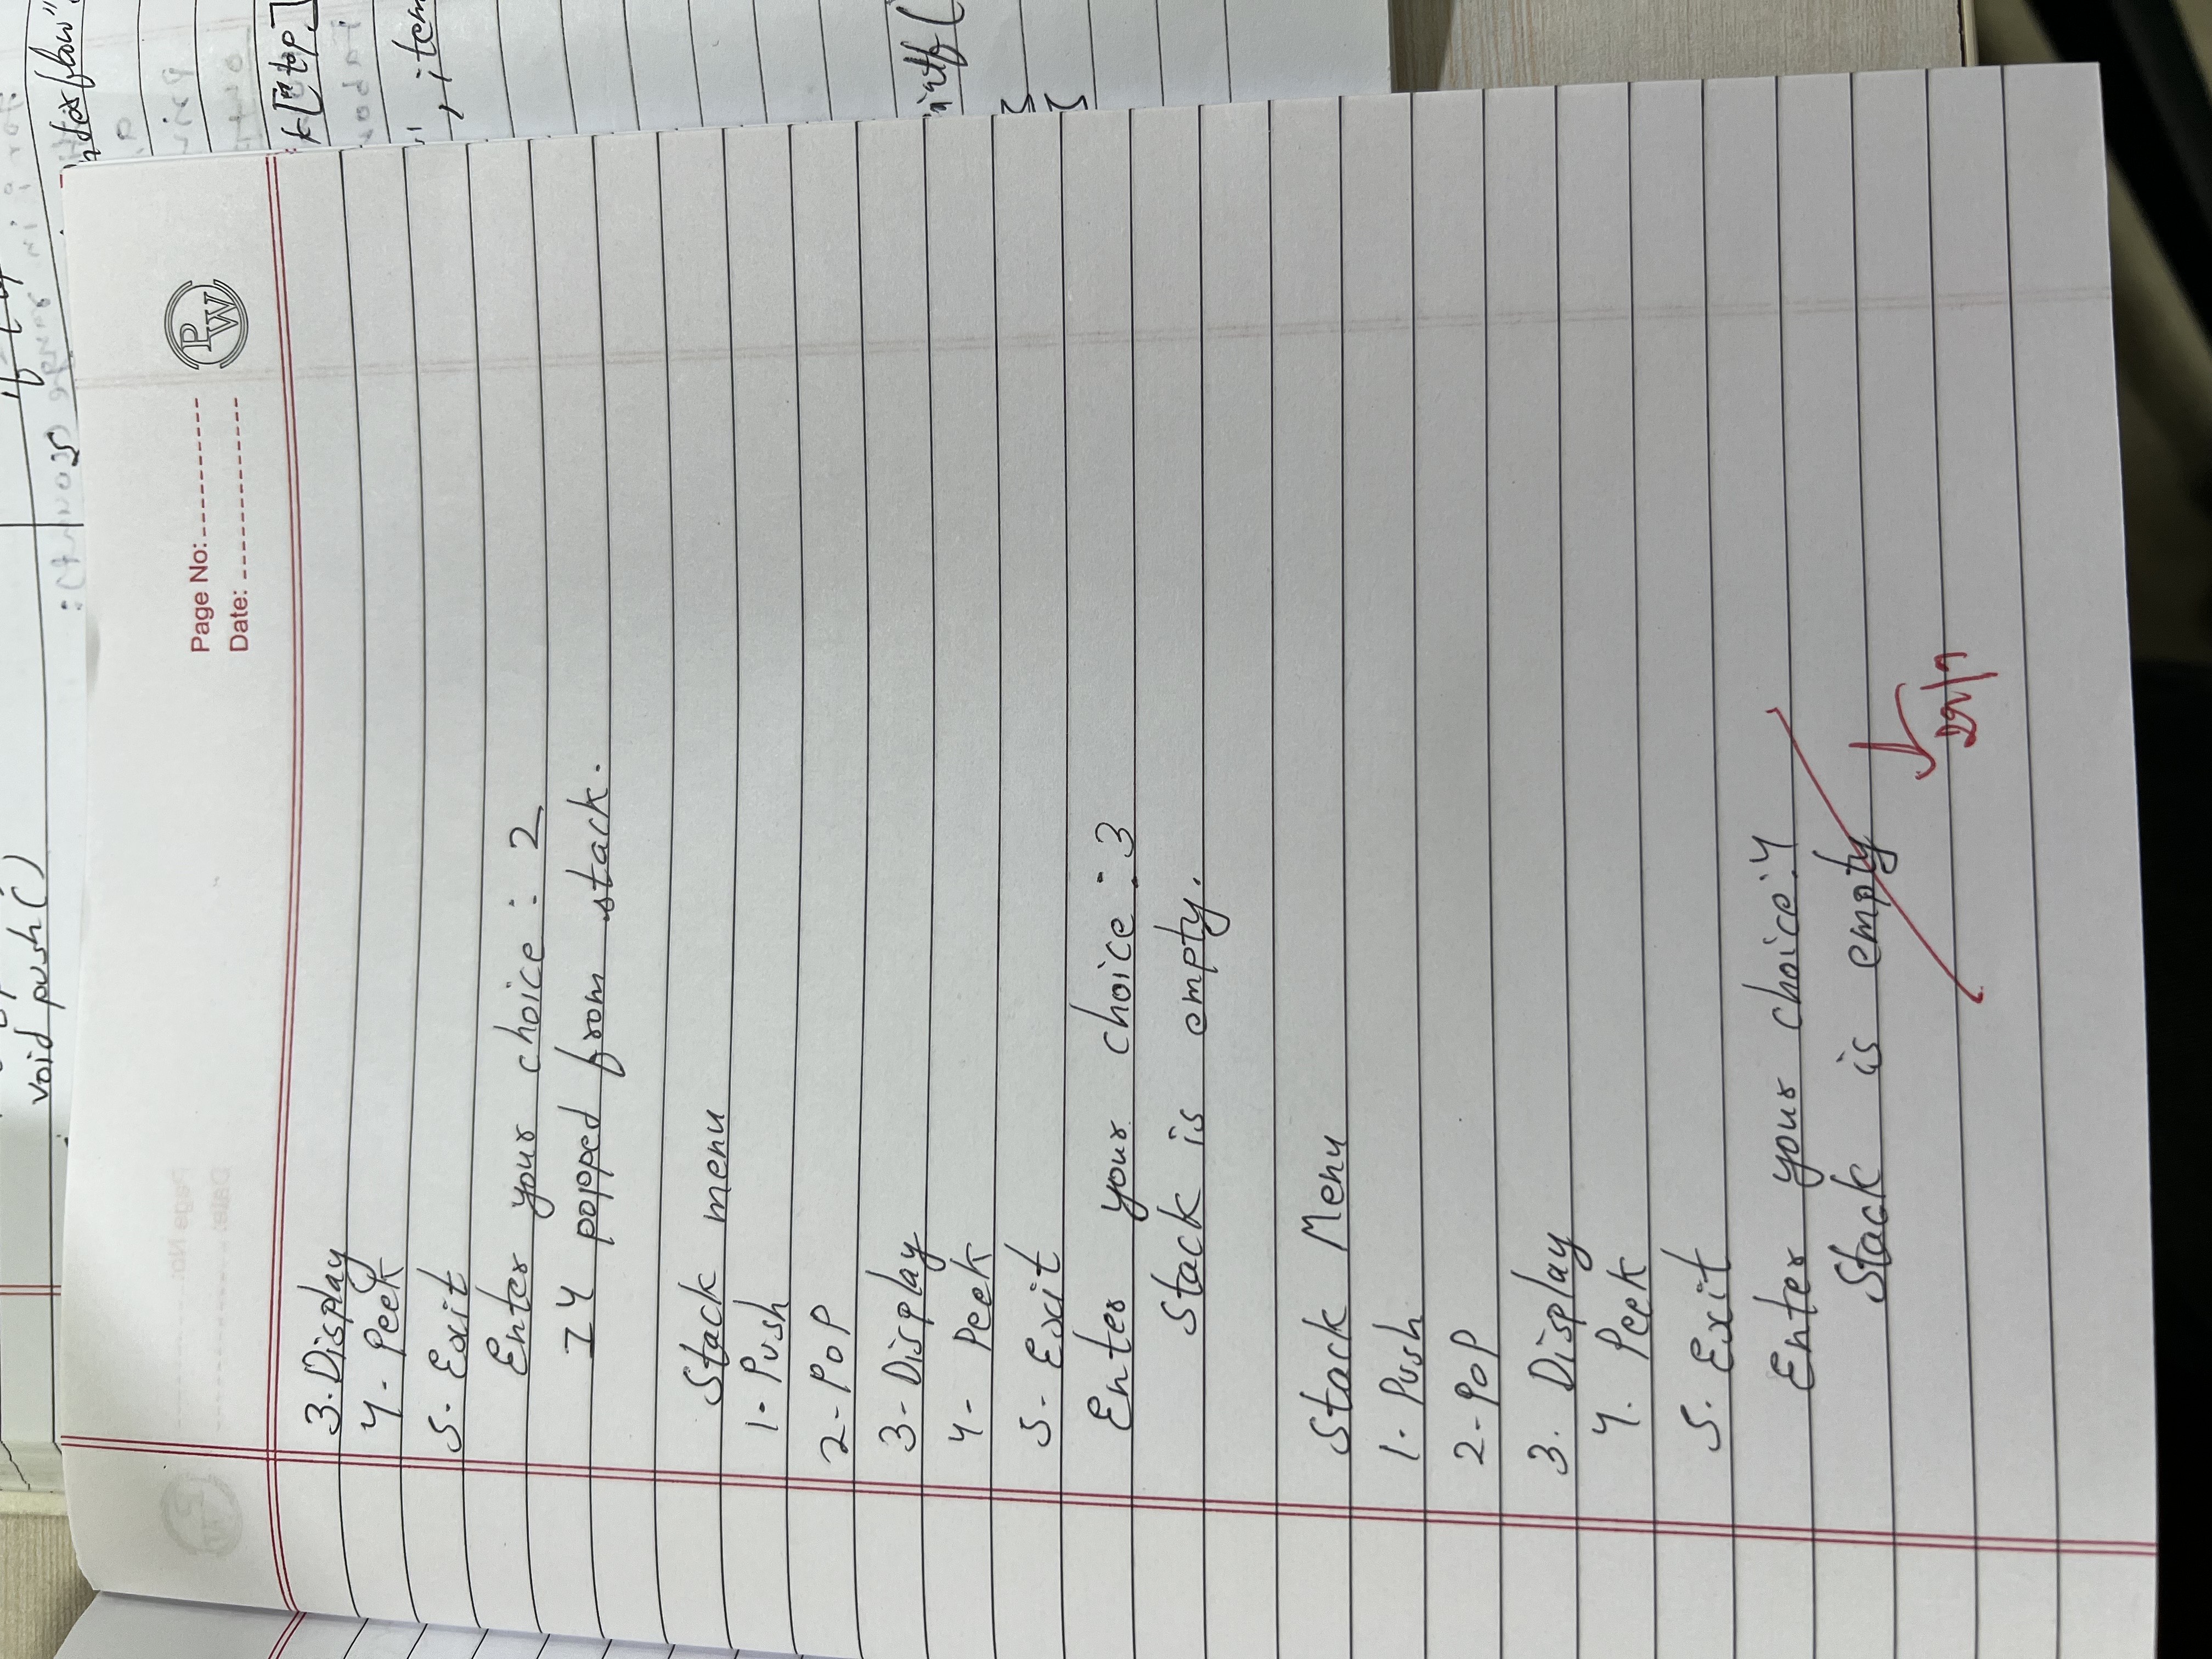 void push()
Page No:
Date:
PW
3. Display
4. Peek
5. Exit
Enter your choice : 2
14 popped from stack.
Stack menu
1. Push
2- POP
3- Display
4- Peek
5- Exit
Enter your choice : 3
Stack is empty.
Stack Menu
1. Push
2- POP
3. Display
4. Peek
5. Exit
Enter your choice:4
Stack is empty